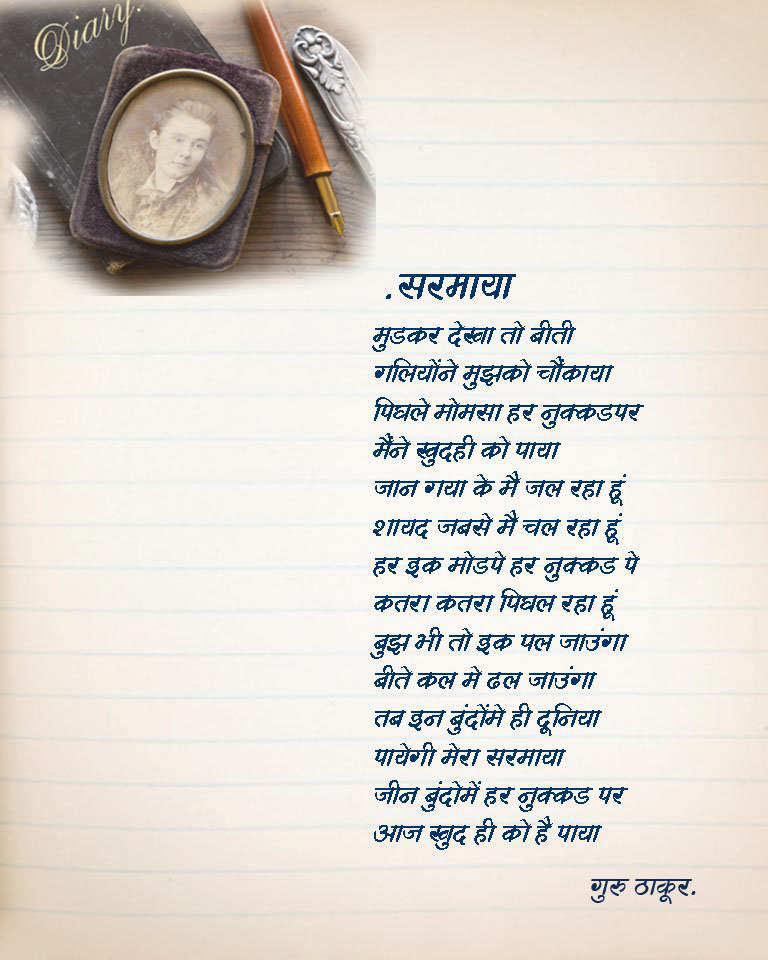 Diary.
.सरमाया
मुडकर देखा तो बीती
गलियोंने मुझको चौंकाया
पिघले मोमसा हर नुक्कडपर
मैंने खुदही को पाया
जान गया के मै जल रहा हूं
शायद जबसे मै चल रहा हूं
हर इक मोडपे हर नुक्कड पे
कतरा कतरा पिघल रहा हूं
बुझ भी तो इक पल जाउंगा
बीते कल मे ढल जाउंगा
तब इन बुंदोंमे ही दूनिया
पायेगी मेरा सरमाया
जीन बुंदोमें हर नुक्कड पर
आज खुद ही को है पाया
गुरु ठाकूर.